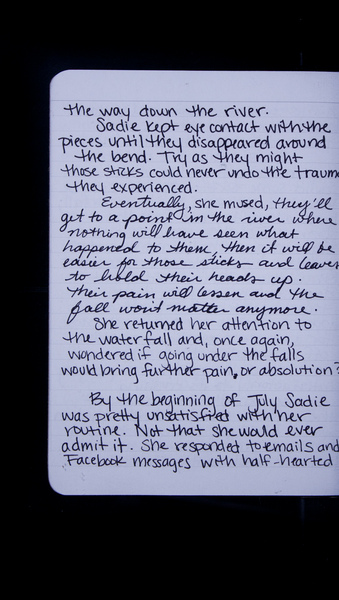 the way down the river.
Sadie kept eye contact with the
pieces until they disappeared around
the bend. Try as they might
those sticks could never undo the trauma
they experienced.
Eventually, she mused, they'll
get to a point in the river where
nothing will have seen what
happened to them, then it will be
easier for those sticks and leaves
to hold their heads up.
Their pain will lessen and the
fall won't matter anymore.
She returned her attention to
the waterfall and, once again,
wondered if going under the falls
would bring further pain, or absolution?
By the beginning of July Sadie
was pretty unsatisfied with her
routine. Not that she would ever
admit it. She responded to emails and
Facebook messages with half-hearted